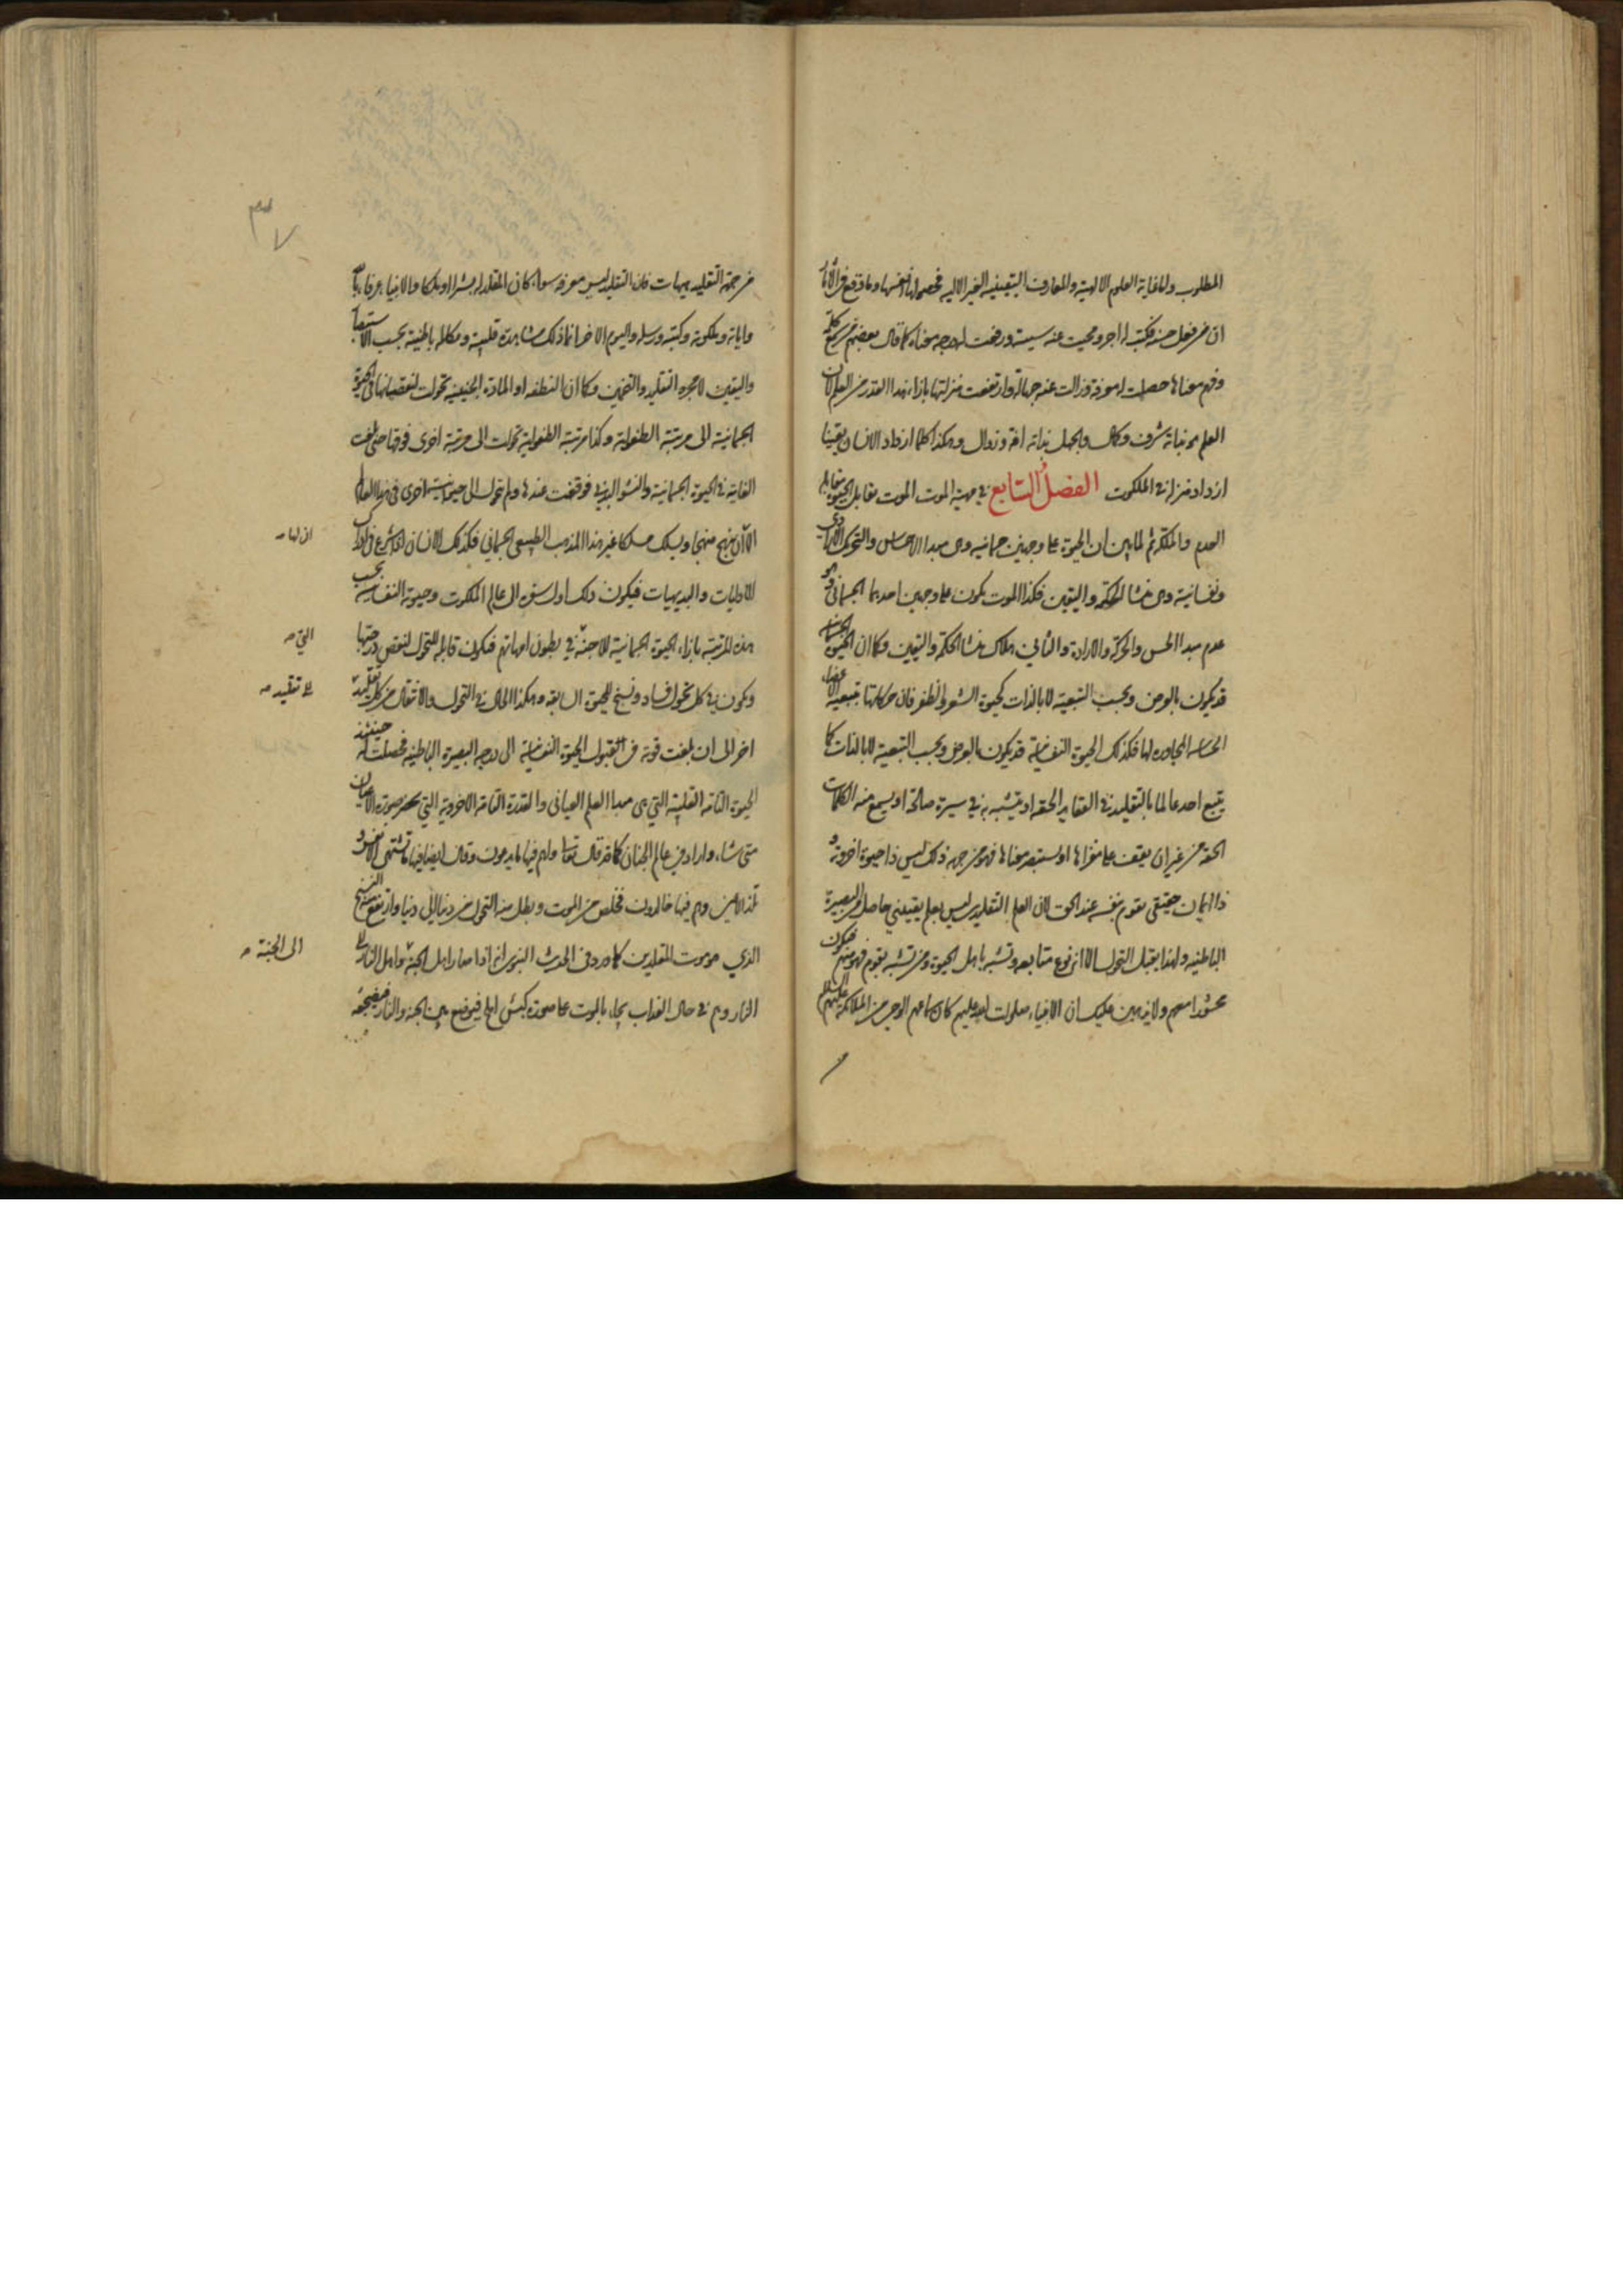 المطلوب واما غاية العلوم الالهية والمعارف اليقينية الغير الالية فحصولها نفسها وما وقع في الآثار
ان من فعل حسنة فكتب له اجر ومحيت عنه سيئة ورفعت له درجة معناه كما قال بعضهم من سمع كلمة
وفهم معناها حصلت له معرفة وزالت عنه جهالة وارتفعت منزلتها بازاء هذا القدر من العلم لان
العلم بذاته شرف وكمال والجهل بذاته افة وزوال وهكذا كلما ازداد الانسان يقينا
ازداد منزلة في الملكوت الفصل السابع في مهية الموت الموت مقابل الحيوة مقابلة
العدم والملكة ثم لما تبين ان الحيوة على وجهين جسمانية وهي مبدا الاحساس والتحريك الارادي
ونفسانية وهي منشا الحكمة واليقين فكذا الموت يكون على وجهين احدهما الجسماني وهو
عدم مبدا الحس والحركة والارادة والثاني هلاك منشا الحكمة واليقين وكما ان الحيوة الحسية
قد يكون بالعرض وبحسب التبعية لا بالذات كحيوة الشعر والظفر فان حركاتها بتبعية الاعضاء
الحساسة المجاورة لها فكذلك الحيوة النفسانية قد يكون بالعرض وبحسب التبعية لا بالذات كما
يتبع احد عالما بالتقليد في العقايد الحقة او يتشبه به في سيرة صالحة او يسمع منه الكلمات
الحقة من غير ان يقف على مغزاها او يستبصر معناها فهو من جهة ذلك ليس ذا حيوة اخروية و
ذا ايمان حقيقي يقوم بنفسه عند الحق لان العلم التقليدي ليس بعلم يقيني حاصل بالبصيرة
الباطنية ولهذا يقبل التحول الا انه نوع متابعة وتشبه باهل الحيوة ومن تشبه بقوم فهو منهم فيكون
محشورا معهم ولا يذهبن عليك ان الانبياء صلوات الله عليهم كان سماعهم الوحي من الملائكة عليهم السلام
من جهة التقليد هيهات فان التقليد ليس معرفة سواء كان المقلد له بشرا او ملكا والانبياء عرفاء بالله
واياته وملكوته وكتبه ورسله واليوم الاخر انما ذلك مشاهدة قلبية ومكالمة باطنية بحسب الاستبصار
واليقين لا مجرد التقليد والتخمين وكما ان النطفة او المادة الجنينية تحولت لنقصانها في الحيوة
الجسمانية الى مرتبة الطفولية وكذا مرتبة الطفولية تحولت الى مرتبة اخرى فوقها حتى بلغت
الغاية في الحيوة الجسمانية والنشو البدني فوقفت عندها ولم تتحول الى حيوانية اخرى في هذا العالم
الا ان ينهج منهجا ويسلك مسلكا غير هذا المذهب الطبيعي الجسماني فكذلك الانسان اذا شرع في ادراك
الاوليات والبديهيات فيكون ذلك اول سفره الى عالم الملكوت وحيوته النفسانية بحسب
هذه المرتبة بازاء الحيوة الجسمانية للاجنة في بطون امهاتهم فيكون قابلة للتحول لنقص درجتها
ويكون في كل تحول فساد ونسخ للحيوة السابقة وهكذا الحال في التحول والانتقال من كل تقليد
اخر الى ان بلغت قوته في القبول الحيوة النفسانية الى درجة البصيرة الباطنية فحصلت له حينئذ
الحيوة التامة القلبية التي هي مبدا العلم العياني والقدرة التامة الاخروية التي صورة الاعيان
متى شاء واراد في عالم الجنان كما قد قال تعالى ولهم فيها ما يدعون وقال ايضا فيها ما تشتهي الانفس و
تلذ الاعين وهم فيها خالدون فخلص من الموت وبطل منه التحول من دنيا الى دنيا وارتفع النسخ
الذي هو موت المقلدين كما ورد في الحديث النبوي انه اذا صار اهل الجنة واهل النار الى
النار وهم في حال العذاب يجاء بالموت على صورة كبش املح فيوضع بين الجنة والنار فيضجعه
الى تقليد صح
الى الجنة صح